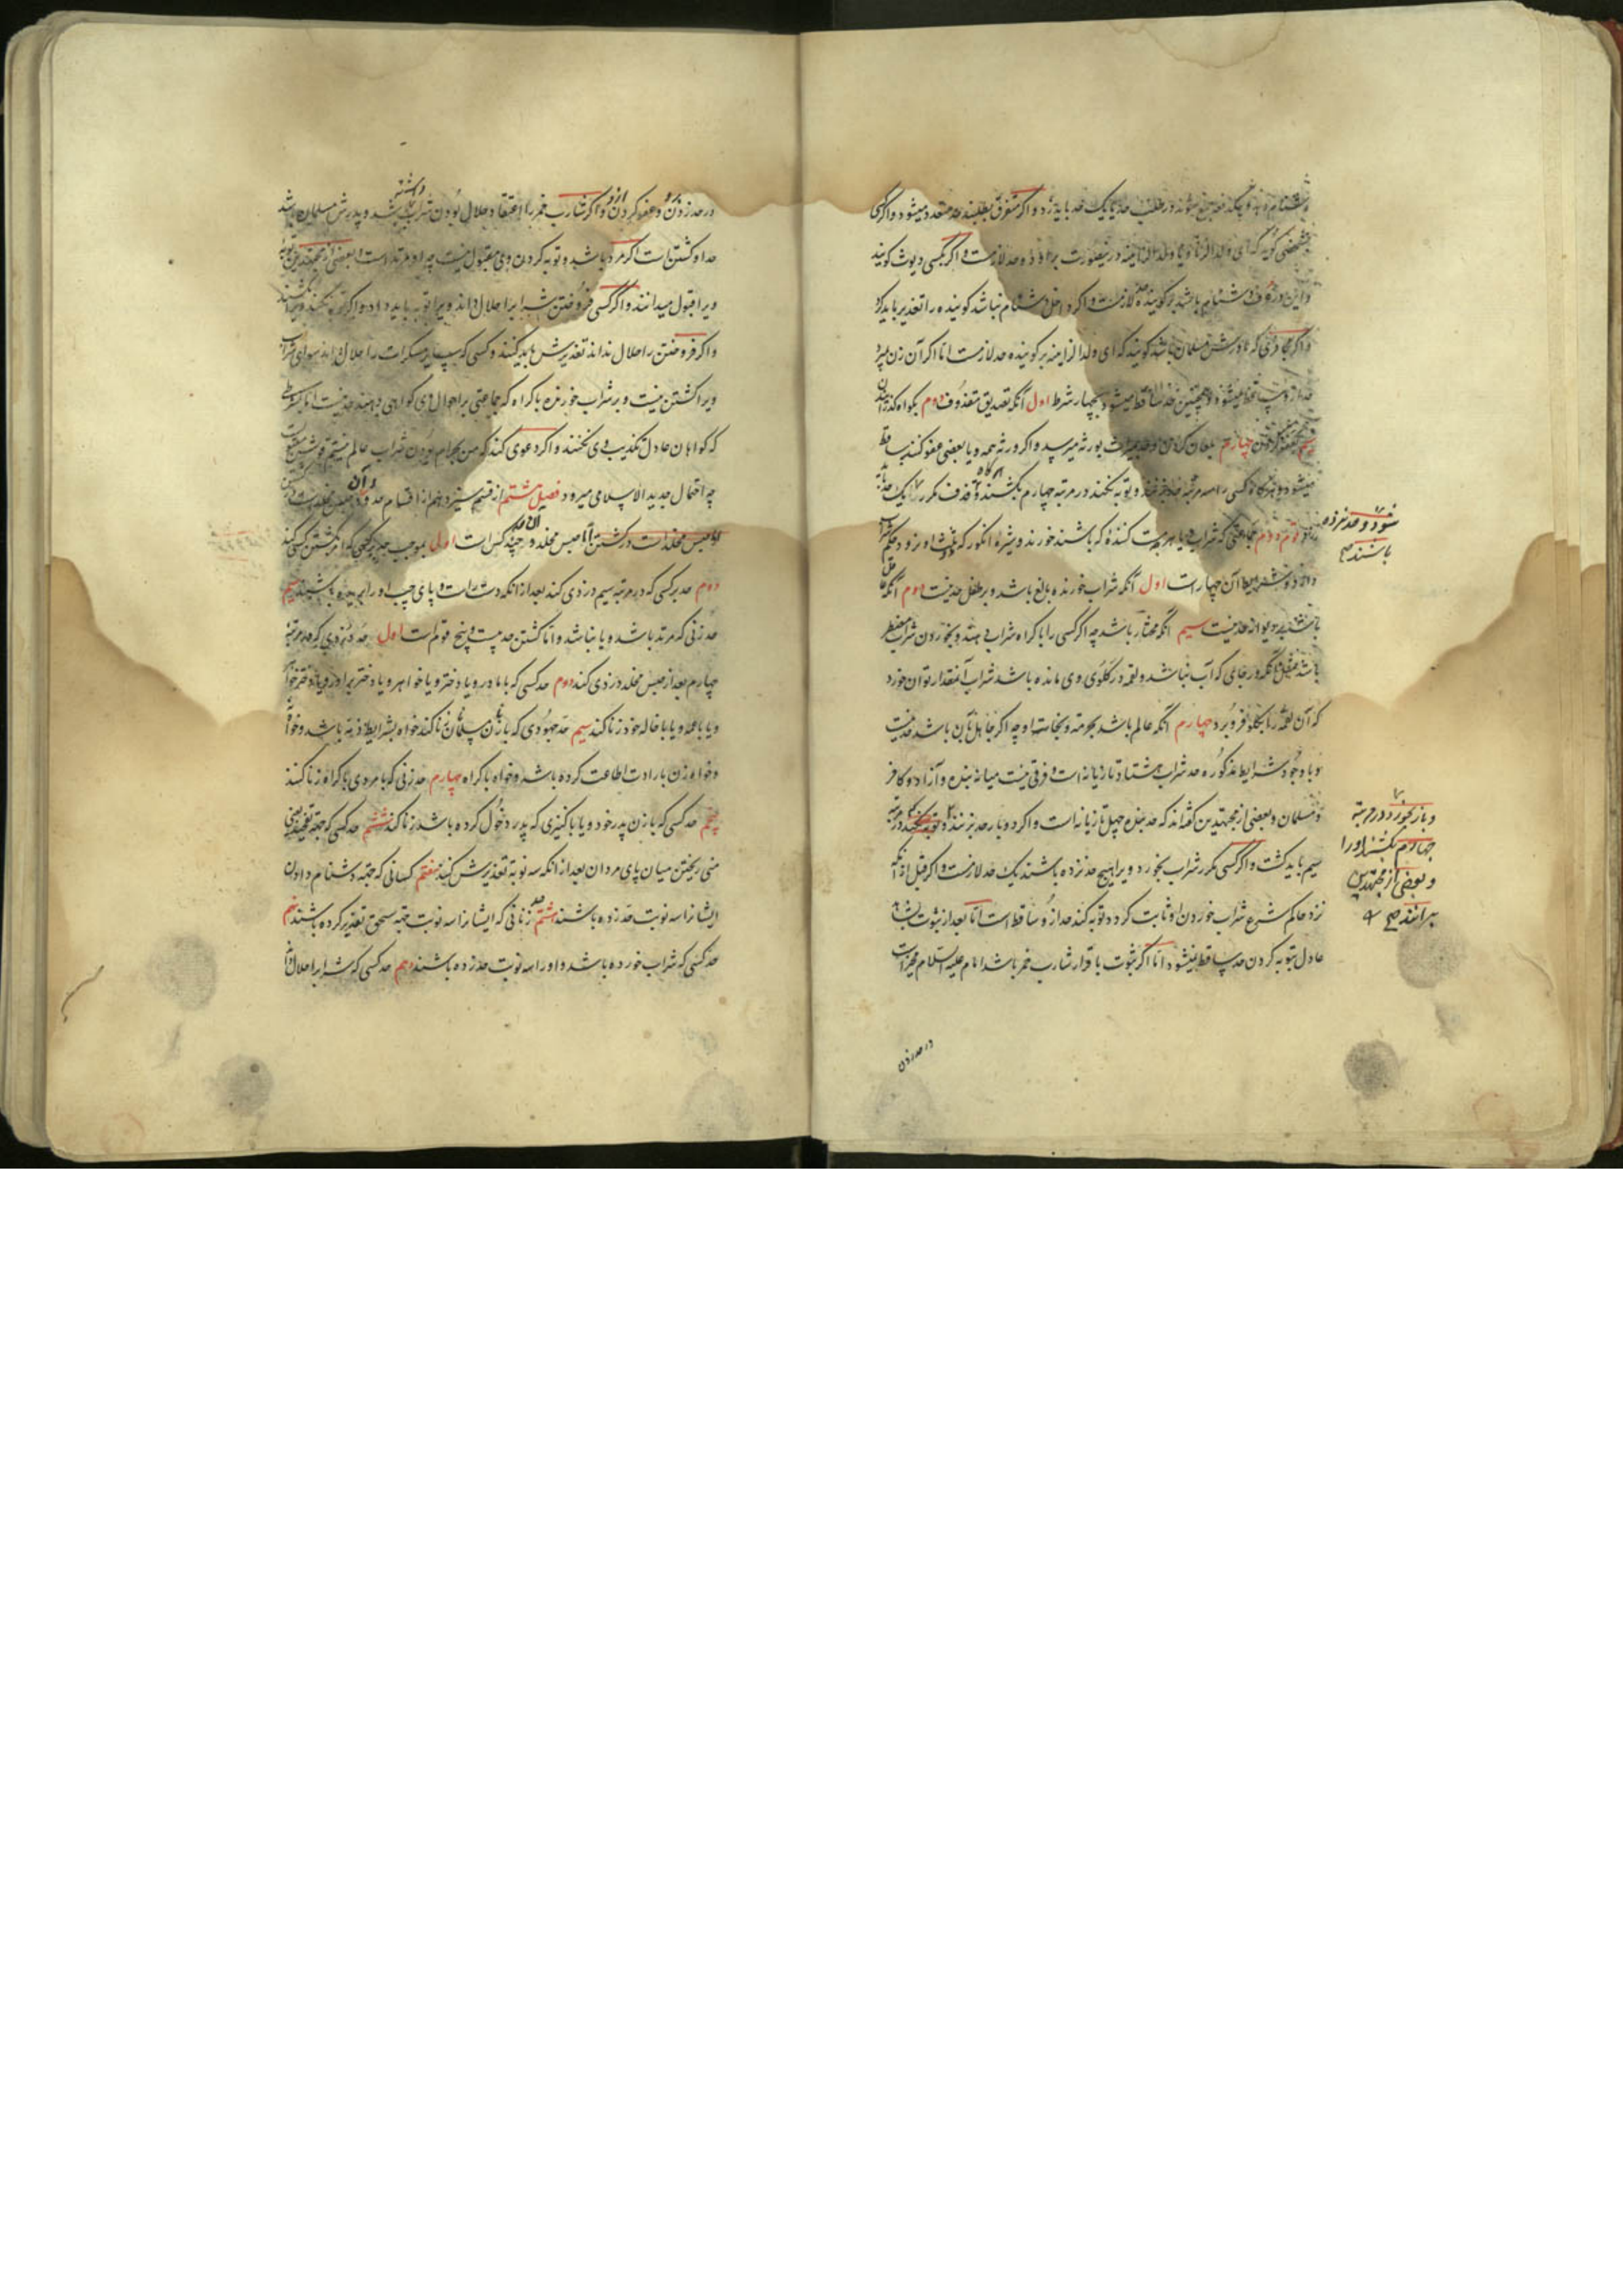 دشنام دهد و چند جمع شوند در طلب حد یک حد باید زد و اگر متفرق بطلبند حد متعدد میشود و اگر کسی
بشخصی گوید که ای ولد الزنا و یا ولد الزانیه درینصورت برو حد لازمست و اگر بکسی دیوث گویند
و این در عرف دشنام باشد بر گوینده حد لازمست و اگر داخل دشنام نباشد گوینده را تعذیر باید کرد
و اگر کافری که مادرش مسلمان باشد گویند که ای ولد الزانیه بر گوینده حد لازمست اما اگر آن زن بمیرد
حد ساقط میشود و همچنین حد ساقط میشود بچهار شرط اول آنکه تصدیق مقذوف دوم بگواه گذرانیدن
سیم بعفو کردن چهارم بلعان کردن و حد بمیراث بورثه میرسد و اگر ورثه همه و یا بعضی عفو کنند ساقط
میشود و هرگاه کسی را سه مرتبه حد بزنند و توبه نکند در مرتبه چهارم بکشند و هرگاه قذف مکرر یک حد
شود و حد نزده
باشند صح
قسم دوم جماعتی که شراب و یا هر مست کننده که باشند خورند و شیره انگور که
و شرایط آن چهارست اول آنکه شراب خورنده بالغ باشد و بر طفل حد نیست دوم آنکه عاقل
باشد و بر دیوانه حد نیست سیم آنکه مختار باشد چه اگر کسی را باکراه شراب دهند و بخوردن شراب مضطر
باشد مثل آنکه در جای که آب نباشد و لقمه در گلوی وی مانده باشد شراب آنمقدار توان خورد
که آن لقمه را بگلو فرو برد چهارم آنکه عالم باشد بحرمته و نجاسته او چه اگر جاهل بآن باشد حد نیست
و با وجود شرایط مذکوره حد شراب هشتاد تازیانه است و فرقی نیست میانه بنده و آزاد و کافر
و مسلمان و بعضی از مجتهدین گفته‌اند که حد بنده چهل تازیانه است و اگر دو بار حد بزنند و توبه نکند در مرتبه
و باز بخورد در مرتبه
چهارم بکشند او را
و بعضی از مجتهدین
برانند صح
سیم باید کشت و اگر کسی مکرر شراب بخورد و ویرا هیچ حد نزده باشند یک حد لازمست و اگر قبل از آنکه
نزد حاکم شرع شراب خوردن او ثابت گردد توبه کند حد ازو ساقط است اما بعد از ثبوت بشاهد
عادل بتوبه کردن حد ساقط نمیشود اما اگر ثبوت باقرار شارب خمر باشد امام علیه السلام مخیر است
در حد زدن
در حد زدن و عفو کردن او و اگر شارب خمر را اعتقاد حلال بودن شراب داشته باشد و پدرش مسلمان باشد
حد او کشتن است اگر مرد باشد و توبه کردن وی مقبول نیست چه او مرتد است و بعضی از مجتهدین توبه
ویرا قبول میدانند و اگر کسی فروختن شراب را حلال داند ویرا توبه باید داد و اگر توبه نکند ویرا بکشند
و اگر فروختن را حلال نداند تعذیرش باید کنند و کسی که سایر مسکرات را حلال داند سوای شراب
ویرا کشتن نیست و بر شراب خورنده باکراه که جماعتی بر احوال وی گواهی دهند حد نیست اما بشرطی
که گواهان عادل تکذیب وی نکنند و اگر دعوی کند که من بحرام بودن شراب عالم نیستم قولش مسموعست
چه احتمال جدید الاسلامی میرود فصل هشتم از قسم سیزدهم از اقسام حدود و آن
حبس مخلد است در کشتن اما حبس مخلد در حد چند کس است اولی بموجب حد کسی که امر بکشتن کسی کند
دوم حد کسی که در مرتبه سیم دزدی کند بعد از آنکه دست راست و پای چپ او را بریده باشند سیم
حد زنی که مرتد باشد و یا نباشد و اما کشتن حد بیست و پنج قومست اول حد دزدی که در مرتبه
چهارم بعد از حبس مخلد دزدی کند دوم حد کسی که با مادر و یا دختر و یا خواهر و یا دختر برادر و یا دختر خواهر
و یا با عمه و یا با خاله خود زنا کند سیم حد جهودی که با زن مسلمان زنا کند خواه بشرایط ذمه باشد و خواه نه
و خواه زن بارادت اطاعت کرده باشد و خواه باکراه چهارم حد زنی که با مردی باکراه زنا کند
پنجم حد کسی که با زن پدر خود و یا با کنیزی که پدر دخول کرده باشد زنا کند ششم حد کسی که جهته تفخیذ یعنی
منی ریختن میان پای مردان بعد از آنکه سه نوبه تعذیرش کنند هفتم کسانی که جهته دشنام دادن
ایشانرا سه نوبت حد زده باشند هشتم حد زنانی که ایشانرا سه نوبت جهته سحق تعذیر کرده باشند نهم
حد کسی که شراب خورده باشد و او را سه نوبت حد زده باشند دهم حد کسی که شراب را حلال داند